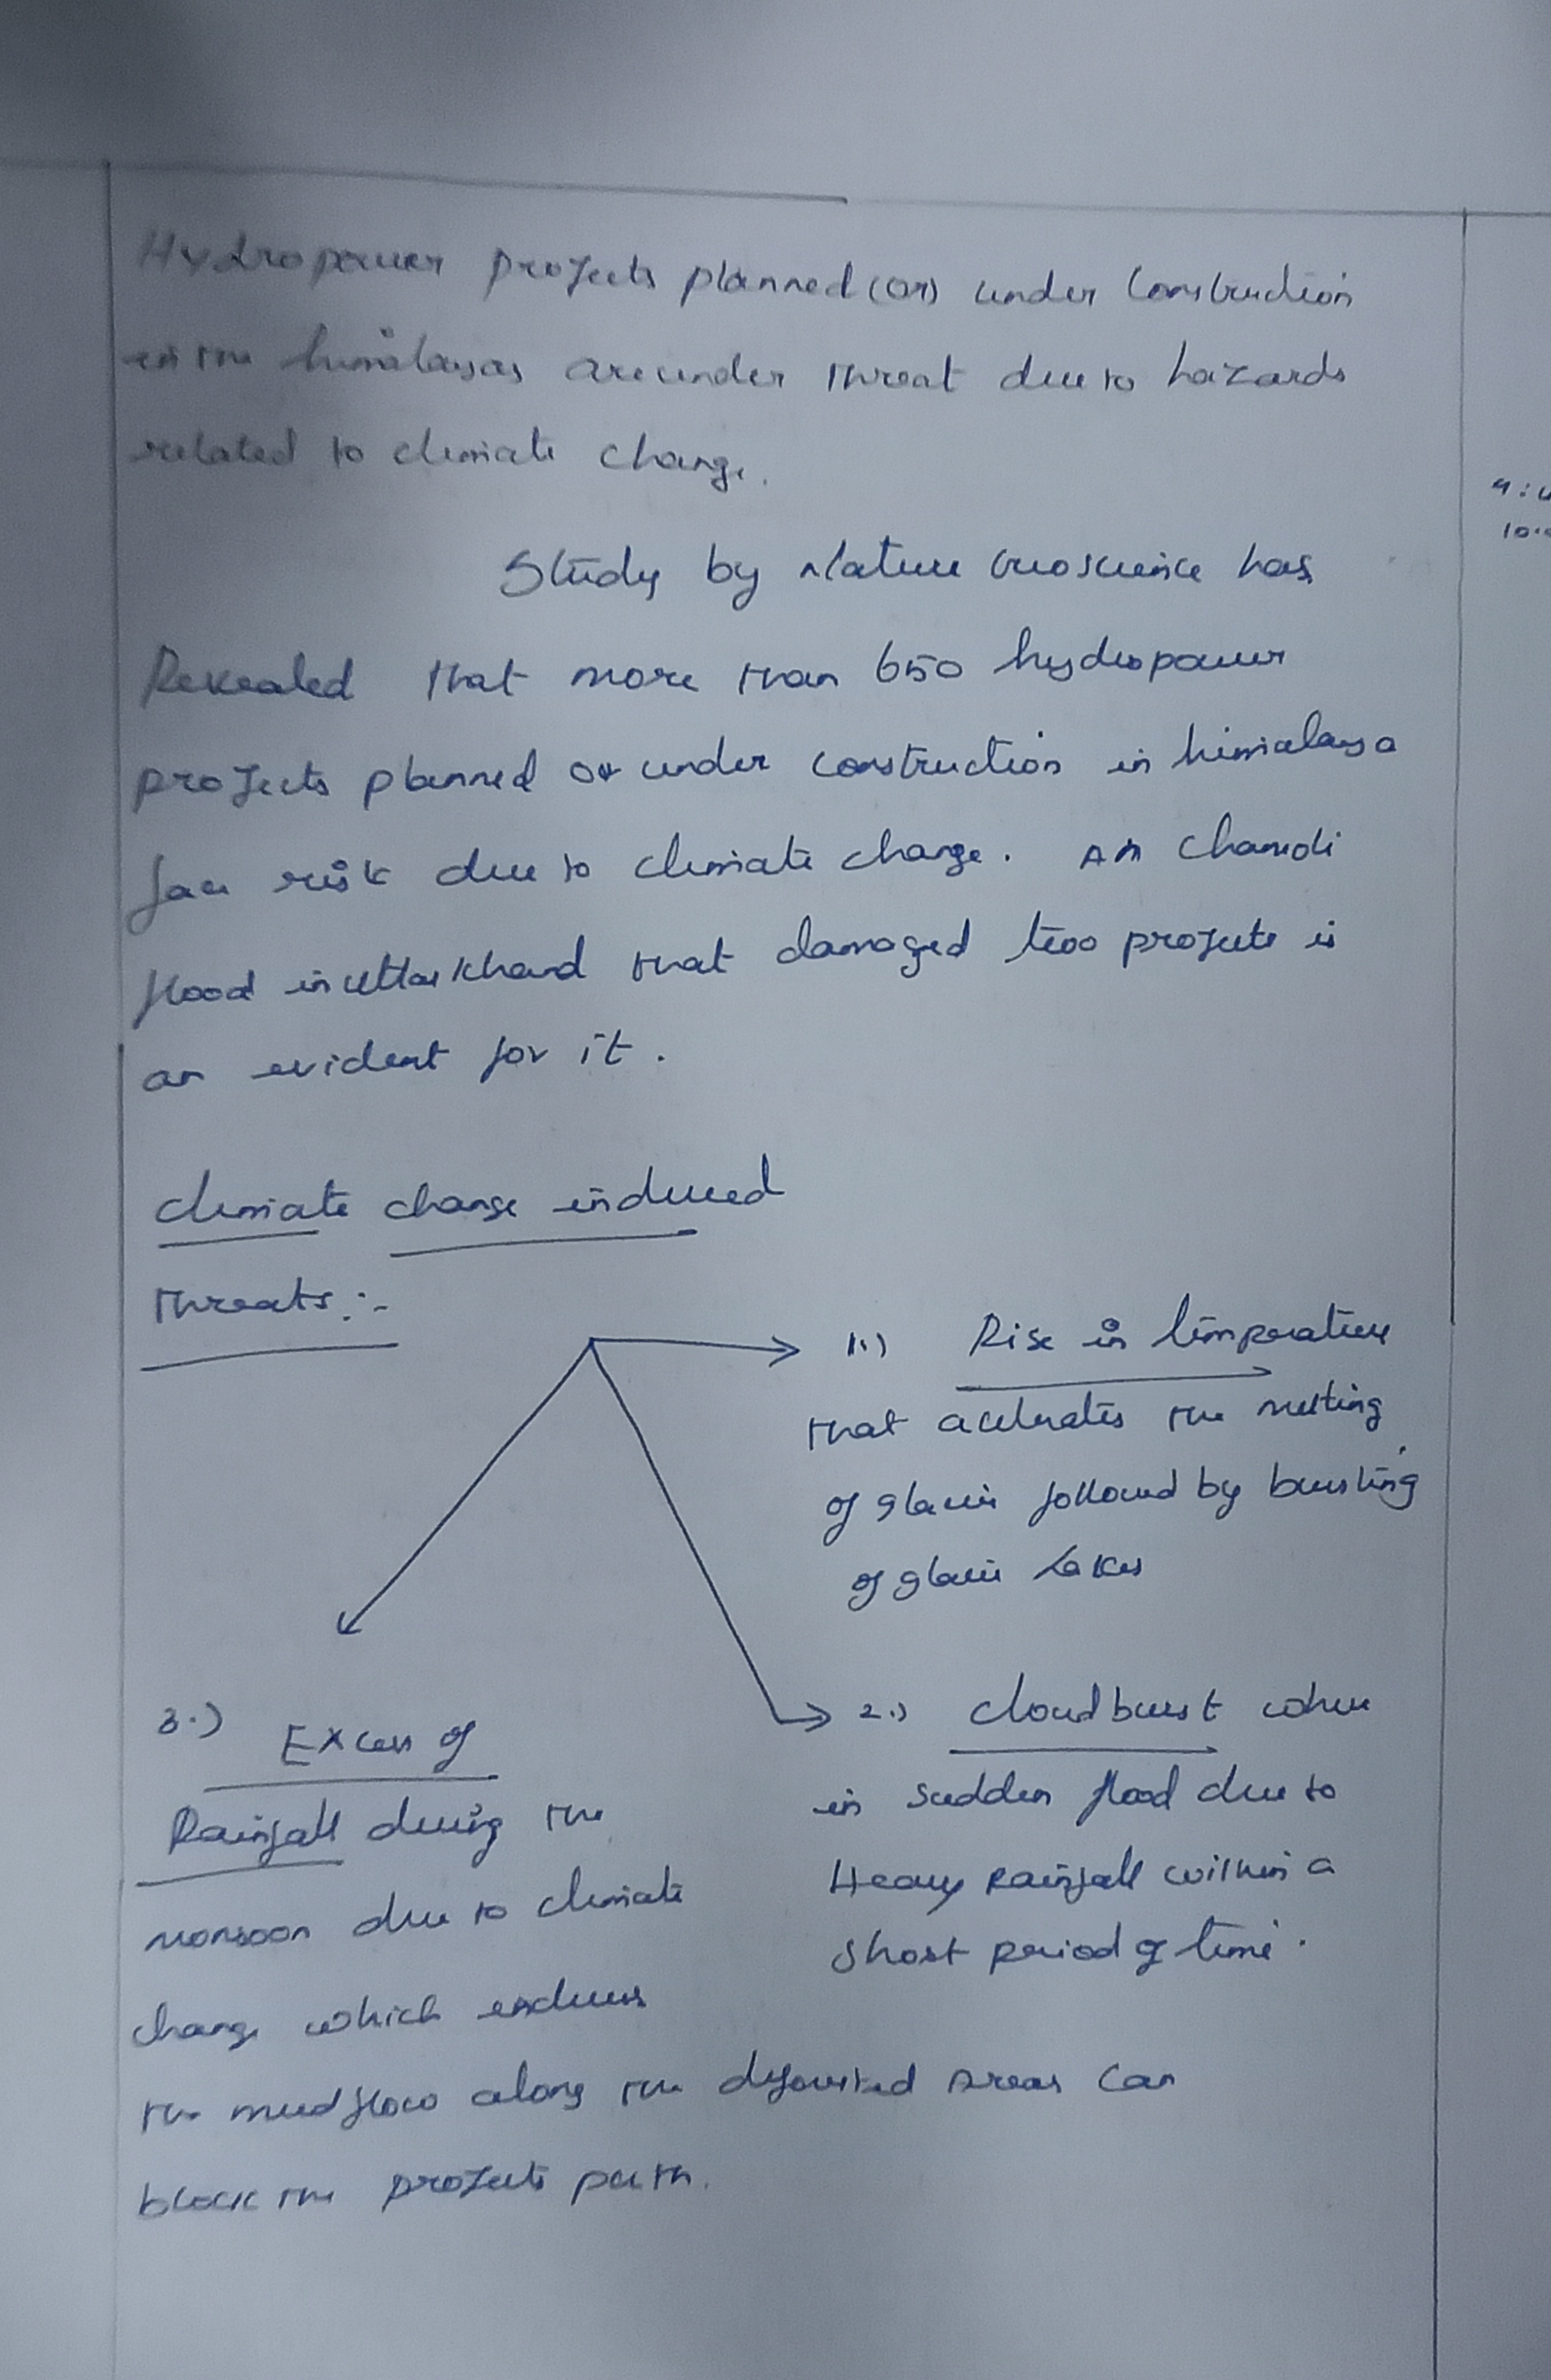 Hydropower projects planned (or) under construction
in the himalayas are under threat due to hazards
related to climate change.
Study by Nature Geoscience has
Revealed that more than 650 hydropower
projects planned or under construction in himalaya
face risk due to climate change. An Chamoli
flood in uttarkhand that damaged two projects is
an evident for it.
climate change induced
threats :-
1.) Rise in temperature
that acelerates the melting
of glacier followed by bursting
of glacier Lakes
2.) cloud burst where
in sudden flood due to
Heavy Rainfall within a
short period of time.
3.) Excess of
Rainfall during the
monsoon due to climate
change which induces
the mudflow along the deforested Areas can
block the projects path.